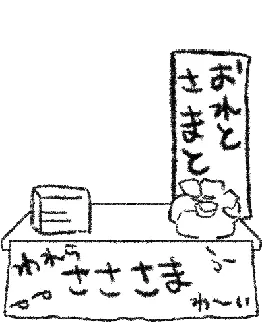 おれと
さまと
われら
さささま
わ〜い